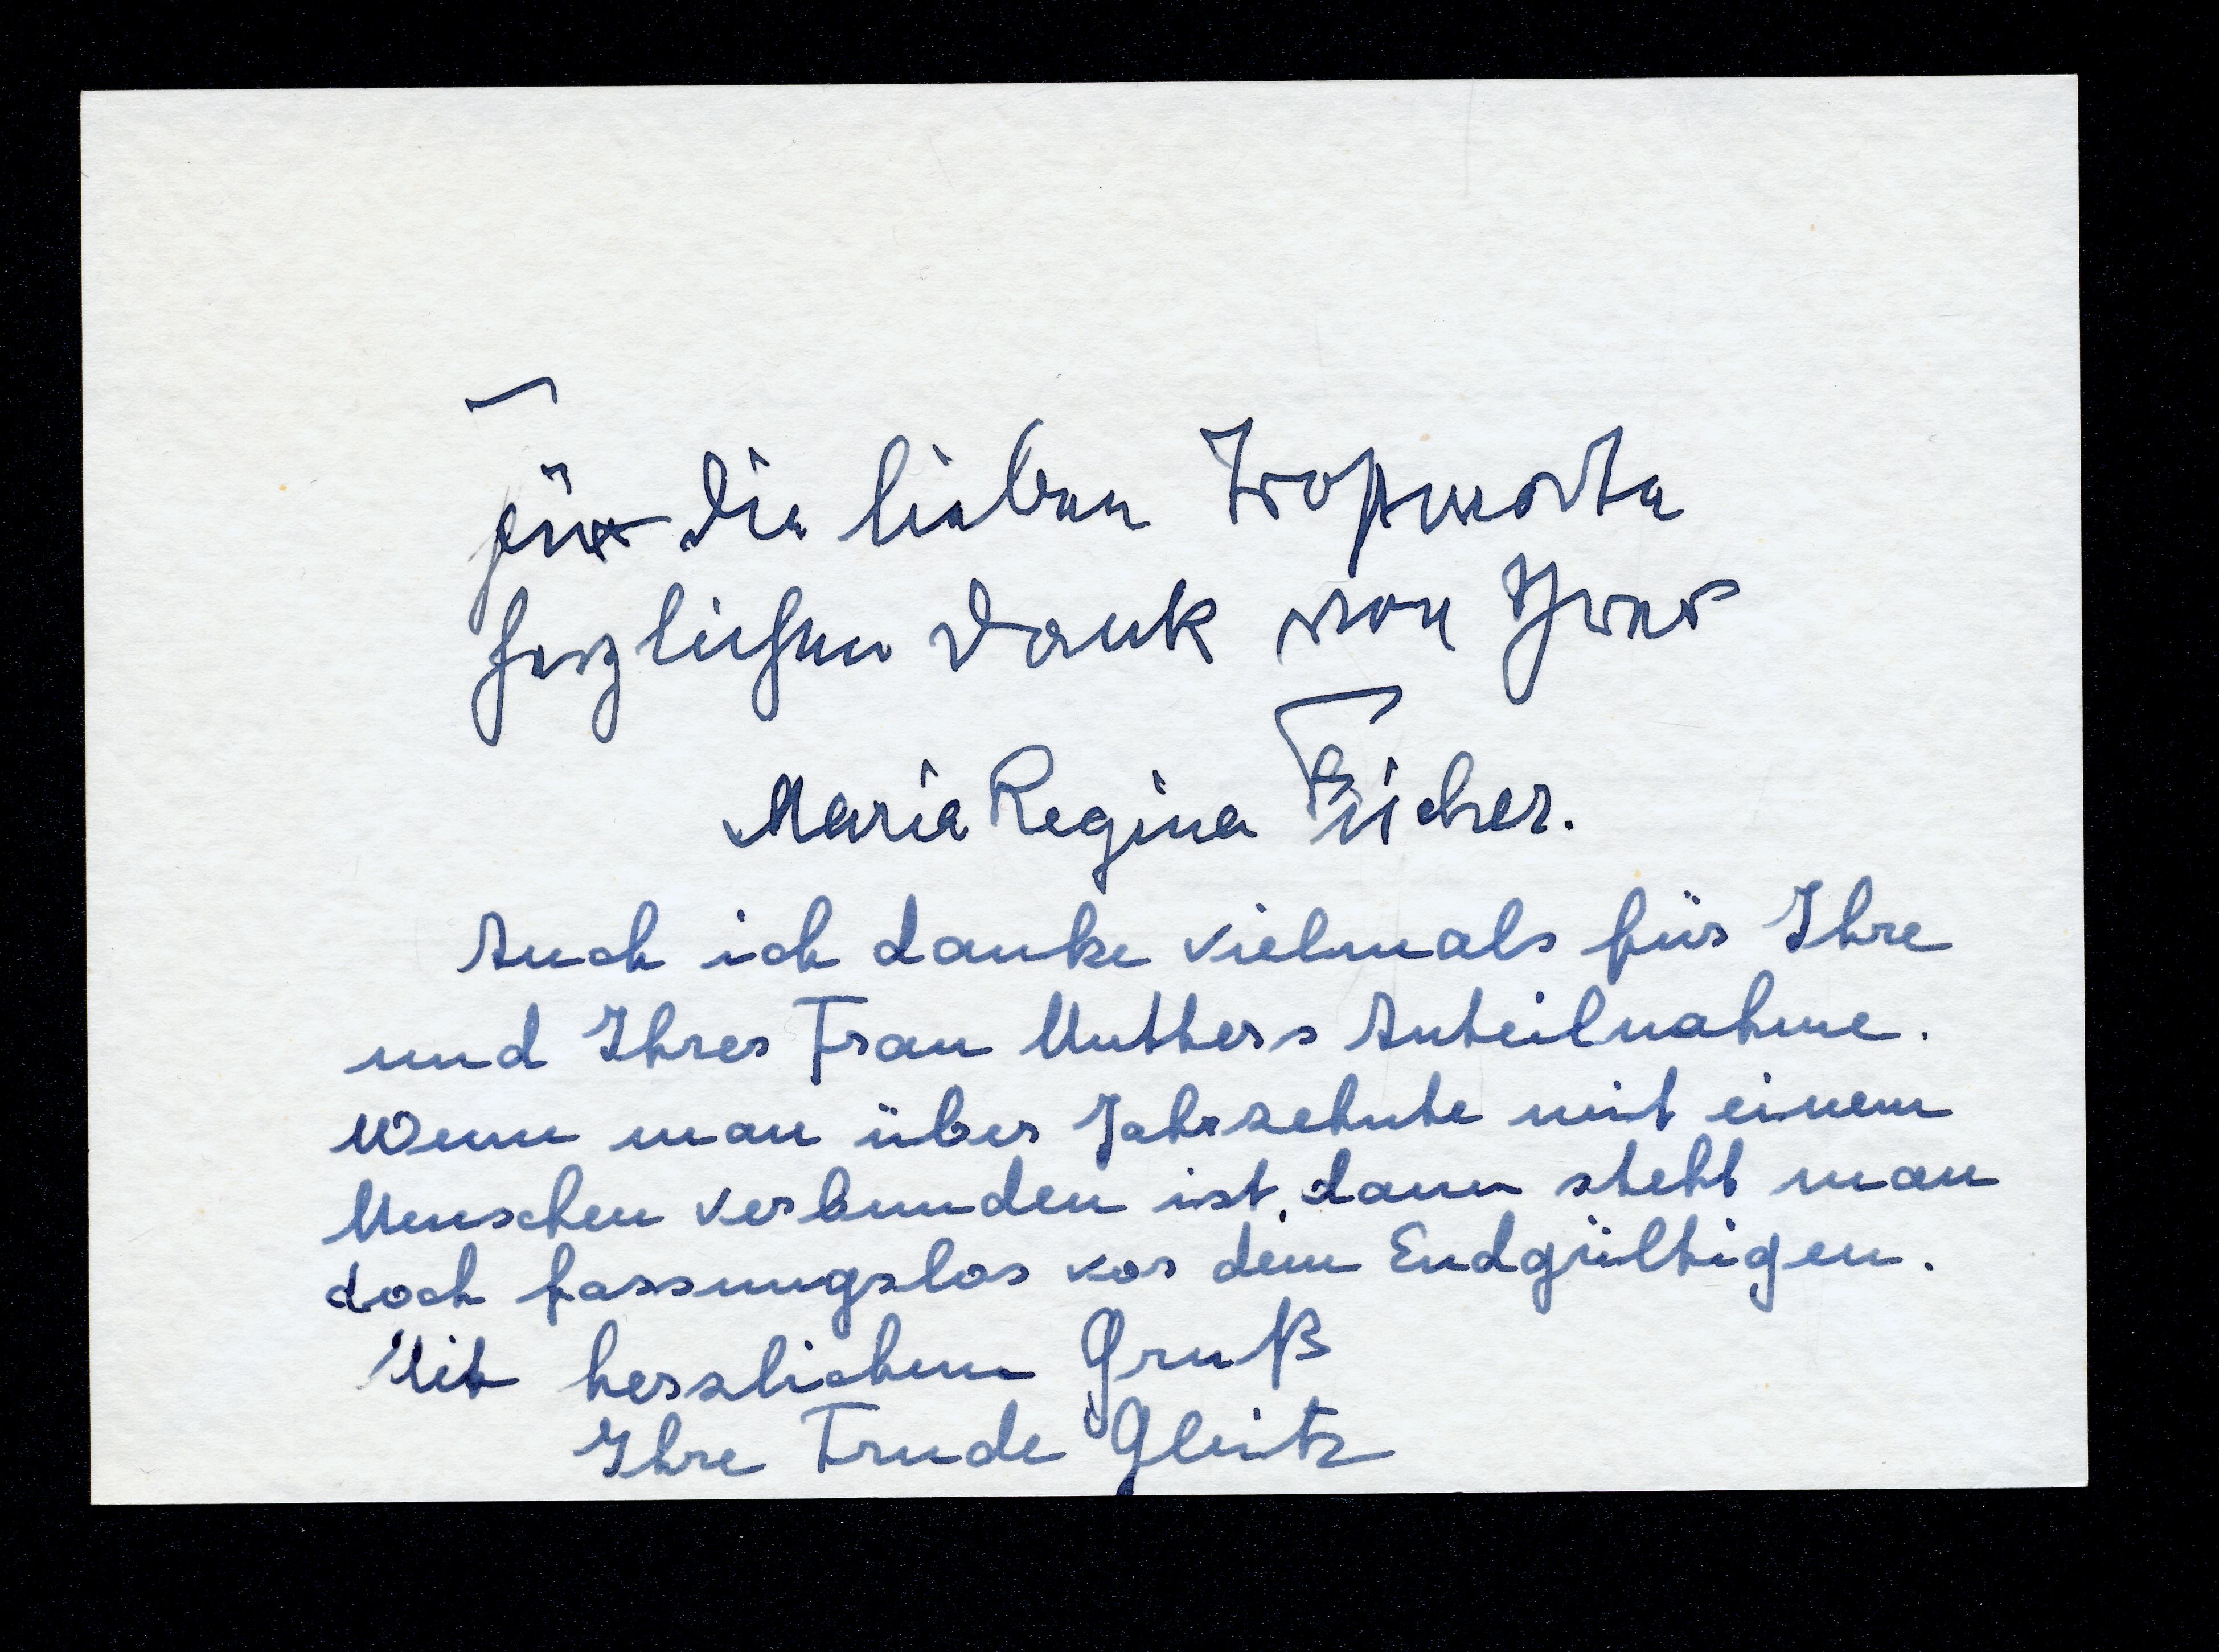 Für die lieben Trostworte
herzlichen Dank von Ihrer
Maria Regina
Auch ich danke vielmals für Ihre
und Ihrer Frau Mutters Anteilnahme.
Wenn man über Jahrzehnte mit einem
Menschen verbunden ist, dann steht man
doch fassungslos vor dem Endgültigen.
Mit herzlichem Gruß
Ihre Trude Gleitz